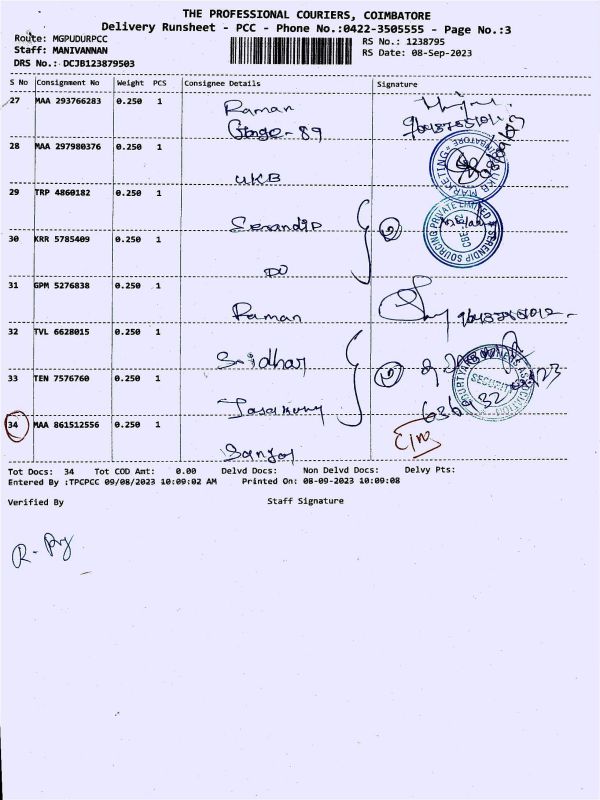 THE PROFESSIONAL COURIERS, COIMBATORE
Delivery Runsheet - PCC - Phone No.:0422-3505555 - Page No.:3
Route: MGPUDURPCC
Staff: MANIVANNAN
DRS No.: DCJB123879503
RS No.: 1238795
RS Date: 08-Sep-2023
S No Consignment No Weight PCS Consignee Details Signature
27 MAA 293766283 0.250 1 Raman
28 MAA 297980376 0.250 1 UKB
UKB MARKETING COIMBATORE
29 TRP 4860182 0.250 1 Serandip 2
SERENDIP SOURCING PRIVATE LIMITED CBE
30 KRR 5785409 0.250 1 DO
31 GPM 5276838 0.250 1 Raman
32 TVL 6628015 0.250 1 Sridhar 2
SECURITY
33 TEN 7576760 0.250 1
34 MAA 861512556 0.250 1 Sanjay
Tot Docs: 34 Tot COD Amt: 0.00 Delvd Docs: Non Delvd Docs: Delvy Pts:
Entered By :TPCPCC 09/08/2023 10:09:02 AM Printed On: 08-09-2023 10:09:08
Verified By Staff Signature